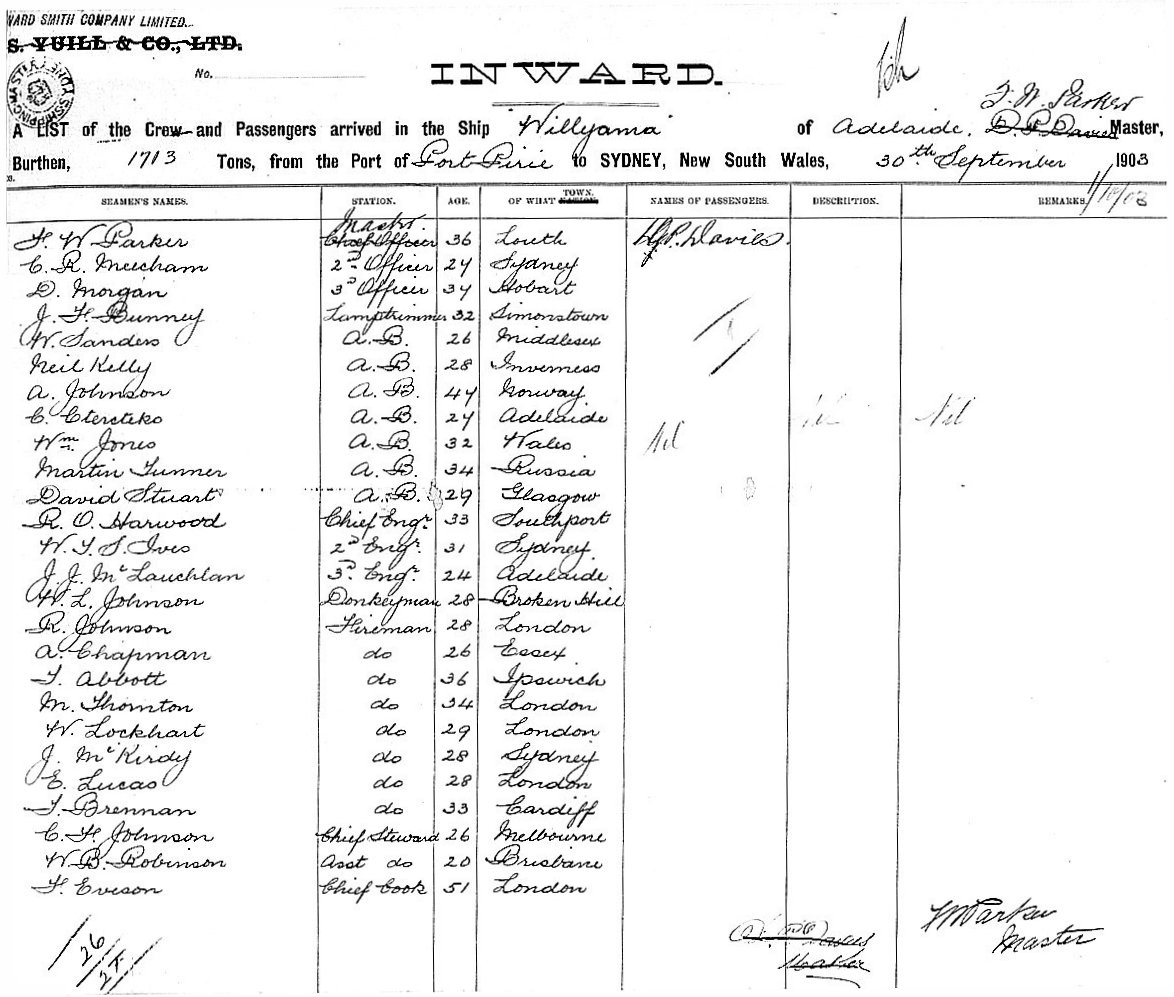 WARD SMITH COMPANY LIMITED.
S. YUILL & CO., LTD.
No.
INWARD.
F. W. Parker
A LIST of the Crew and Passengers arrived in the Ship "Willyama" of Adelaide, D. P. Davies Master,
Burthen, 1713 Tons, from the Port of Port Pirie to SYDNEY, New South Wales, 30th September 1903
1/10/03
SEAMEN'S NAMES. STATION. AGE. OF WHAT TOWN. NATION. NAMES OF PASSENGERS. DESCRIPTION. REMARKS.
Master
F. W. Parker Chief Officer 36 Louth D. P. Davies.
C. R. Meecham 2nd Officer 24 Sydney
D. Morgan 3rd Officer 34 Hobart
J. F. Bunney Lamptrimmer 32 Simonstown
W. Sanders A.B. 26 Middlesex
Neil Kelly A.B. 28 Inverness
A. Johnson A.B. 44 Norway
C. A.B. 24 Adelaide Nil
Wm. Jones A.B. 32 Wales Nil
Martin Tunner A.B. 34 Russia
David Stuart A.B. 29 Glasgow
R. O. Harwood Chief Engr. 33 Southport
W. T. S. Ives 2nd Engr. 31 Sydney
J. J. McLauchlan 3rd Engr. 24 Adelaide
W. L. Johnson Donkeyman 28 Broken Hill
R. Johnson Fireman 28 London
A. Chapman do 26 Essex
T. Abbott do 36 Ipswich
M. Thornton do 34 London
W. Lockhart do 29 London
J. McKirdy do 28 Sydney
E. Lucas do 28 London
T. Brennan do 33 Cardiff
C. F. Johnson Chief Steward 26 Melbourne
W. B. Robinson Asst do 20 Brisbane
F. Eveson Chief Cook 51 London
F W Parker
Master
Davies
Master
26
27